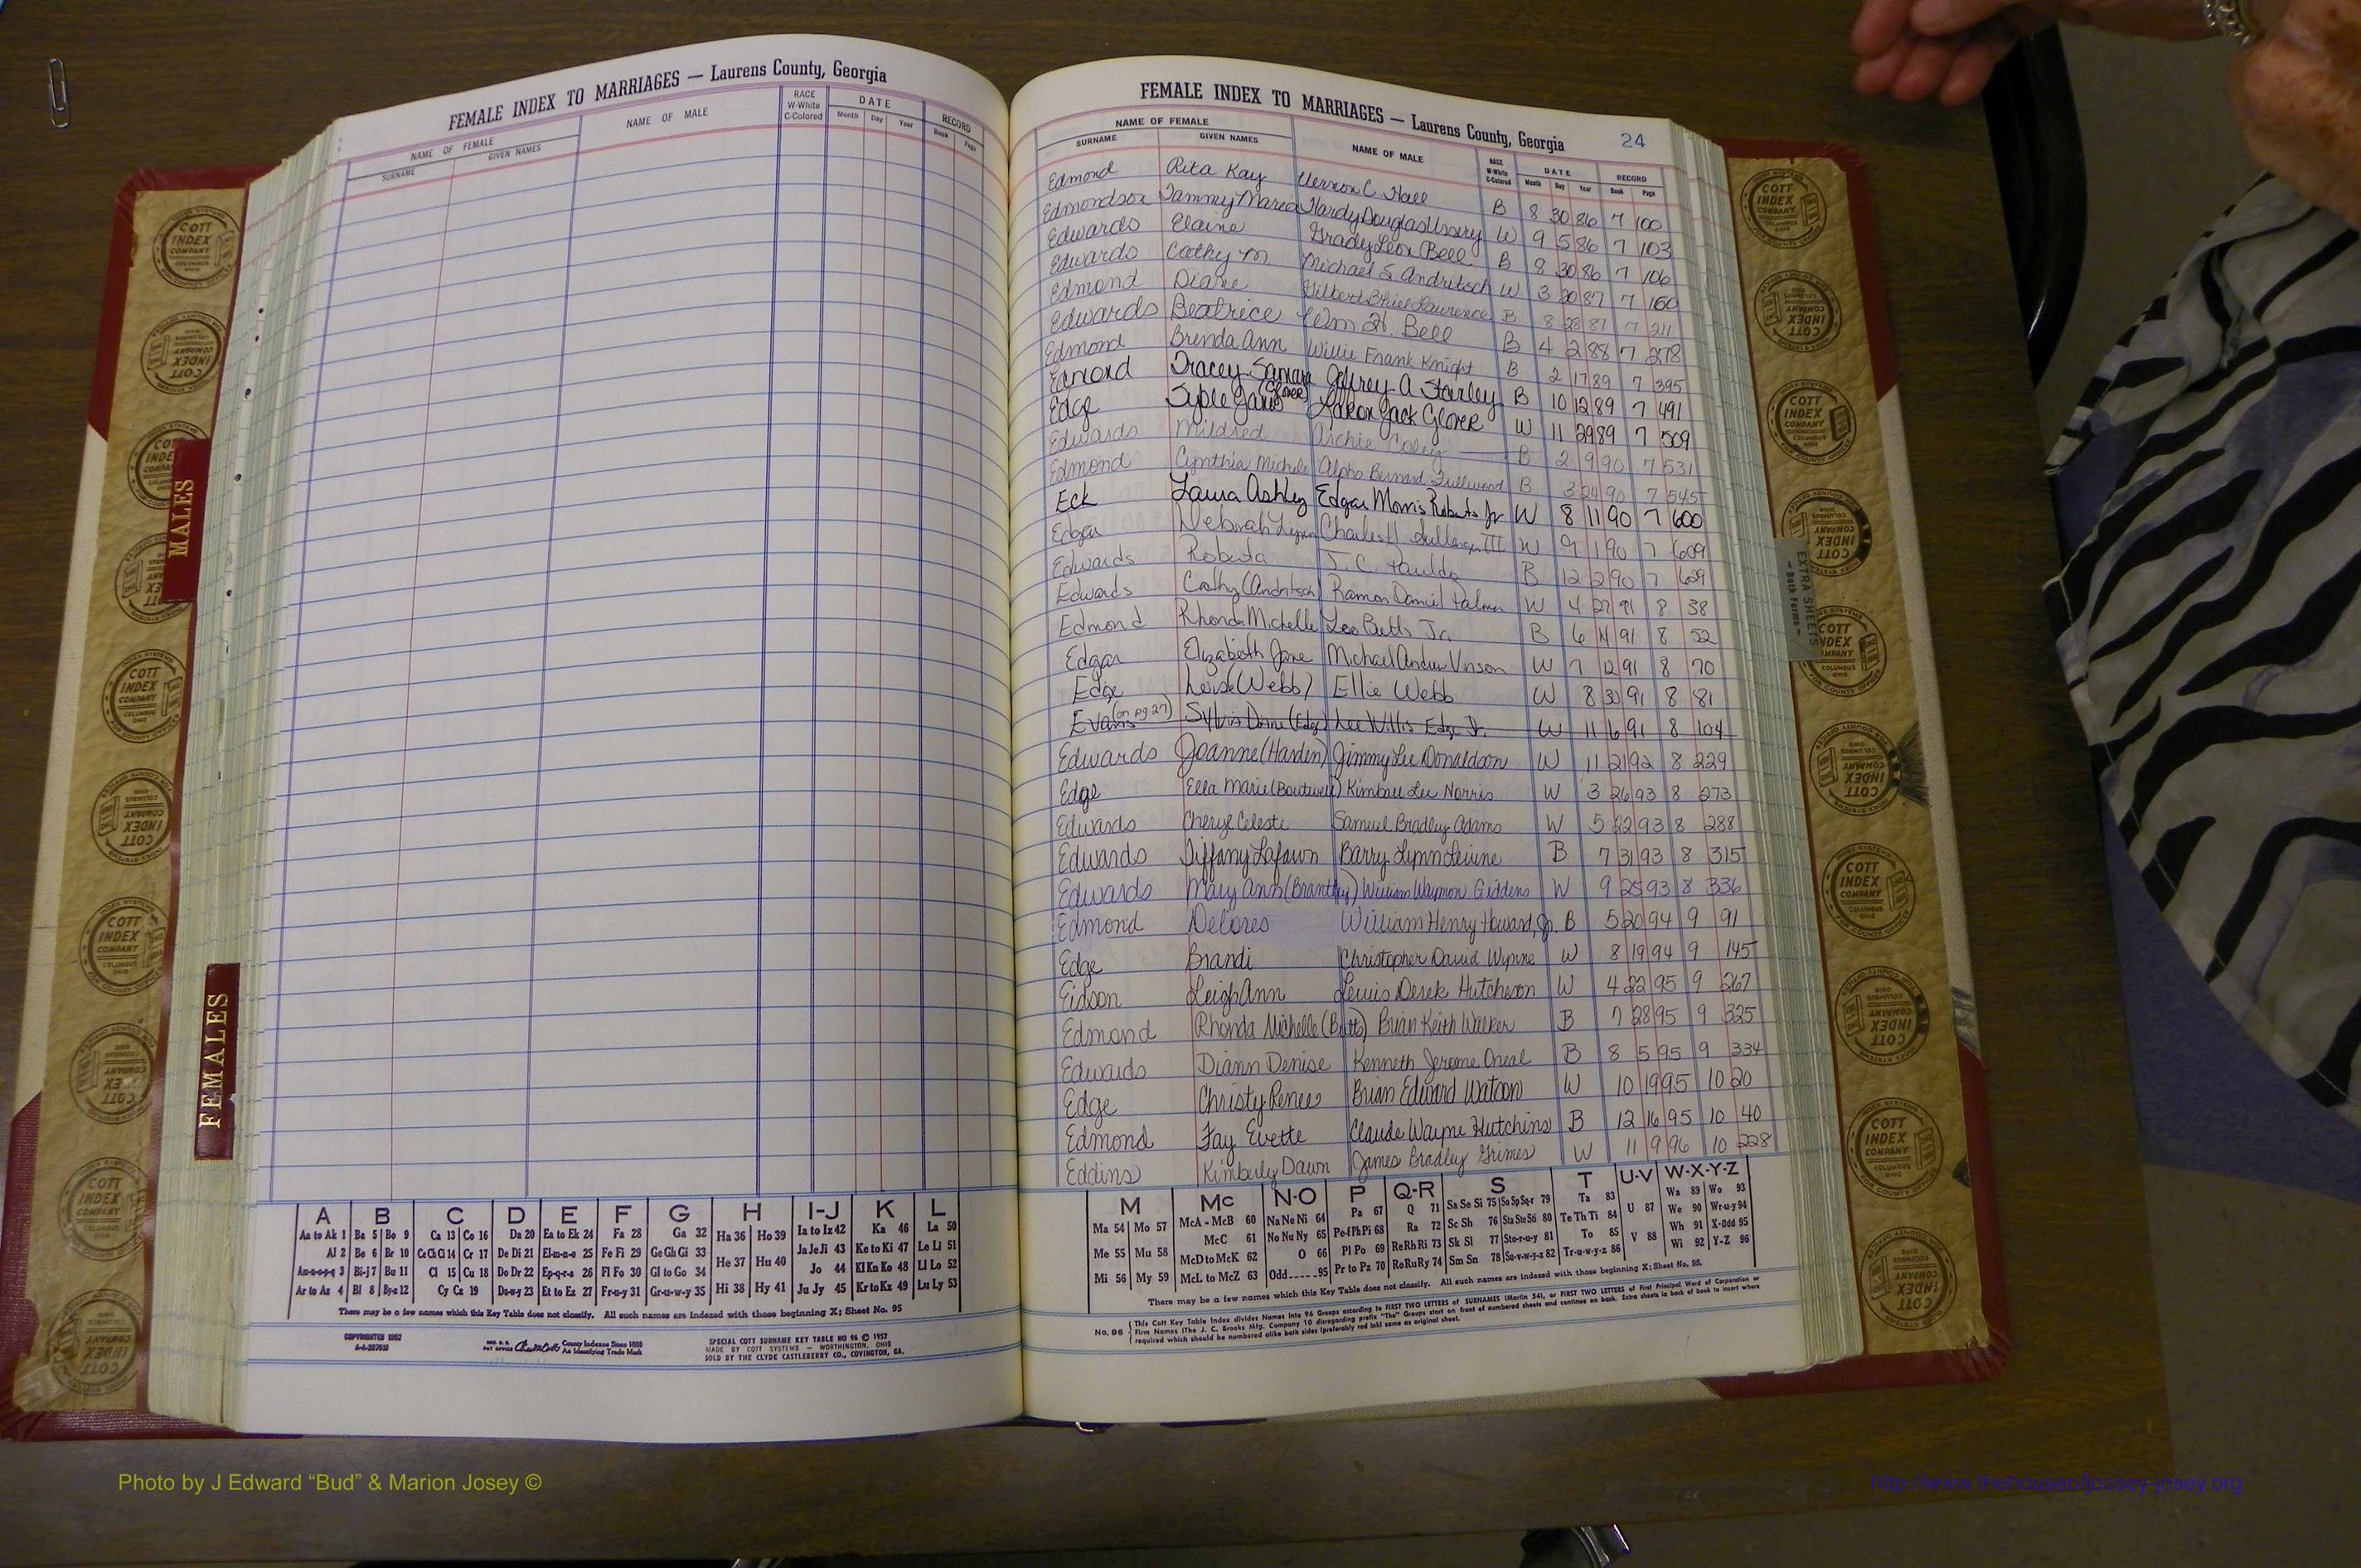 FEMALE INDEX TO MARRIAGES — Laurens County, Georgia
NAME OF FEMALE NAME OF MALE RACE W-White C-Colored DATE RECORD
SURNAME GIVEN NAMES Month Day Year Book Page
FEMALE INDEX TO MARRIAGES — Laurens County, Georgia 24
NAME OF FEMALE NAME OF MALE RACE W-White C-Colored DATE RECORD
SURNAME GIVEN NAMES Month Day Year Book Page
Edmond Rita Kay Vernon C. Hall B 8 30 86 7 100
Edmondson Tammy Maria Hardy Douglas Ussery W 9 5 86 7 103
Edwards Elaine Grady Leon Bell B 8 30 86 7 106
Edwards Cathy M Michael S. Andritsch W 3 20 87 7 160
Edmond Diane Gilbert Lawrence B 8 28 87 7 211
Edwards Beatrice Wm H. Bell B 4 2 88 7 278
Edmond Brenda Ann Willie Frank Knight B 2 17 89 7 395
Edmond Tracey Jeffrey A Stanley B 10 12 89 7 491
Edge Syble (Glover) Jack Glover W 11 29 89 7 509
Edwards Mildred Archie Coley B 2 9 90 7 531
Edmond Cynthia Michele Alpho Bernard Fullwood B 3 24 90 7 545
Eck Laura Ashley Edgar Morris Roberts Jr W 8 11 90 7 600
Edgar Deborah Lynn Charles H. III W 9 1 90 7 609
Edwards Roberta J.C. B 12 2 90 7 629
Edwards Cathy (Andritsch) Ramon Daniel Palmer W 4 27 91 8 38
Edmond Rhonda Michelle Leo Butts Jr. B 6 14 91 8 52
Edgar Elizabeth Jane Michael Andrew Vinson W 7 12 91 8 70
Edge Loise (Webb) Ellie Webb W 8 30 91 8 81
Evans (on pg 27) Sylvis Diane (Edge) Lee Willis Edge Jr. W 11 6 91 8 104
Edwards Joanne (Harden) Jimmy Lee Donaldson W 11 21 92 8 229
Edge Ella Marie (Boutwell) Kimball Lee Norris W 3 26 93 8 273
Edwards Cheryl Celeste Samuel Bradley Adams W 5 22 93 8 288
Edwards Tiffany Lafawn Barry Lynn Levine B 7 31 93 8 315
Edwards Mary Ann (Brantley) William Waymon Giddens W 9 25 93 8 336
Edmond Delores William Henry Howard, Jr. B 5 20 94 9 91
Edge Brandi Christopher David Wynne W 8 19 94 9 145
Eidson Leigh Ann Lewis Derek Hutcheson W 4 22 95 9 267
Edmond Rhonda Michelle (Butts) Brian Keith Walker B 7 28 95 9 325
Edwards Diann Denise Kenneth Jerome Oneal B 8 5 95 9 334
Edge Christy Renee Brian Edward Watson W 10 19 95 10 20
Edmond Fay Evette Claude Wayne Hutchins B 12 16 95 10 40
Eddins Kimberly Dawn James Bradley Grimes W 11 9 96 10 228
A B C D E F G H I-J K L
Aa to Ak 1 Ba 5 Bo 9 Ca 13 Co 16 Da 20 Ea to Ek 24 Fa 28 Ga 32 Ha 36 Ho 39 Ia to Iz 42 Ka 46 La 50
Al 2 Be 6 Br 10 Ce Ch Ci 14 Cr 17 De Di 21 El-m-n-o 25 Fe Fi 29 Ge Gh Gi 33 He 37 Hu 40 Ja Je Ji 43 Ke to Ki 47 Le Li 51
Am-n-o-p-q 3 Bi-j 7 Bu 11 Cl 15 Cu 18 Do Dr 22 Ep-q-r-s 26 Fl Fo 30 Gl to Go 34 Jo 44 Kl Kn Ko 48 Ll Lo 52
Ar to Az 4 Bl 8 By-z 12 Cy Cz 19 Du-w-y 23 Et to Ez 27 Fr-u-y 31 Gr-u-w-y 35 Hi 38 Hy 41 Ju Jy 45 Kr to Kz 49 Lu Ly 53
There may be a few names which this Key Table does not classify. All such names are indexed with those beginning X; Sheet No. 95
COPYRIGHTED 1952
County Indexes Since 1888
An Identifying Trade Mark
SPECIAL COTT SURNAME KEY TABLE NO 96 © 1952
MADE BY COTT SYSTEMS — WORTHINGTON, OHIO
SOLD BY THE CLYDE CASTLEBERRY CO., COVINGTON, GA.
M Mc N-O P Q-R S T U-V W-X-Y-Z
Ma 54 Mo 57 McA - McB 60 Na Ne Ni 64 Pa 67 Q 71 Sa Se Si 75 So Sp Sq-r 79 Ta 83 U 87 Wa 89 Wo 93
Me 55 Mu 58 McC 61 No Nu Ny 65 Pe-f Ph Pi 68 Ra 72 Sc Sh 76 Sta Ste Sti 80 Te Th Ti 84 We 90 Wr-u-y 94
McD to McK 62 O 66 Pl Po 69 Re Rh Ri 73 Sk Sl 77 Sto-r-u-y 81 To 85 V 88 Wh 91 X-Odd 95
Mi 56 My 59 McL to McZ 63 Odd 95 Pr to Pz 70 Ro Ru Ry 74 Sm Sn 78 Su-v-w-y-z 82 Tr-u-w-y-z 86 Wi 92 Y-Z 96
There may be a few names which this Key Table does not classify. All such names are indexed with those beginning X; Sheet No. 95.
No. 96 This Cott Key Table Index divides Names into 96 Groups according to FIRST TWO LETTERS of SURNAMES (Martin 54), or FIRST TWO LETTERS of First Principal Word of Corporation or
Firm Names (The J. C. Brooks Mfg. Company 10 disregarding prefix "The") Groups start on front of numbered sheets and continue on back. Extra sheets in back of book to insert where
required which should be numbered alike both sides (preferably red ink) same as original sheet.
MALES
FEMALES
EXTRA SHEETS
— Both Forms —
COTT INDEX COMPANY COLUMBUS OHIO
Photo by J Edward “Bud” & Marion Josey ©
http://www.thehouseofjossey-josey.org